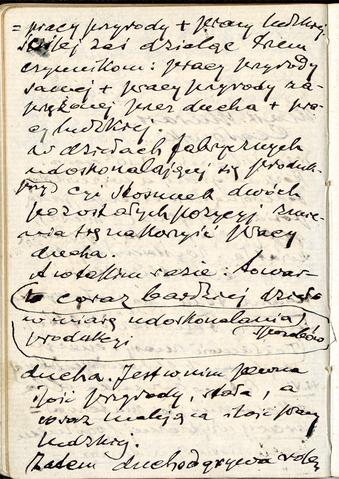 = pracy przyrody + pracy ludzkiej.
ściślej zaś dzieląc trzem
czynnikom: pracy przyrody
samej + pracy przyrody za-
przężonej przez ducha + pra-
cy ludzkiej.
w dziełach fabrycznych
udoskonalającej się produk-
cyi stosunek dwóch
pozostałych pozycyj zmie-
nia się na korzyść pracy
ducha.
A w takim razie: towar
to coraz bardziej dzieło
w miarę udoskonalania sposobów
produkcyi
ducha. Jest w nim pewna
ilość przyrody, stała, a
coraz malejąca ilość pracy
ludzkiej.
Zatem duch odgrywa rolę